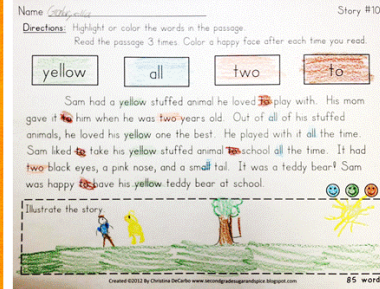 Name
Story #10
Directions: Highlight or color the words in the passage.
Read the passage 3 times. Color a happy face after each time you read.
yellow all two to
Sam had a yellow stuffed animal he loved to play with. His mom
gave it to him when he was two years old. Out of all of his stuffed
animals, he loved his yellow one the best. He played with it all the time.
Sam liked to take his yellow stuffed animal to school all the time. It had
two black eyes, a pink nose, and a small tail. It was a teddy bear! Sam
was happy to have his yellow teddy bear at school.
Illustrate the story.
Created ©2012 By Christina DeCarbo www.secondgradesugarandspice.blogspot.com
85 word